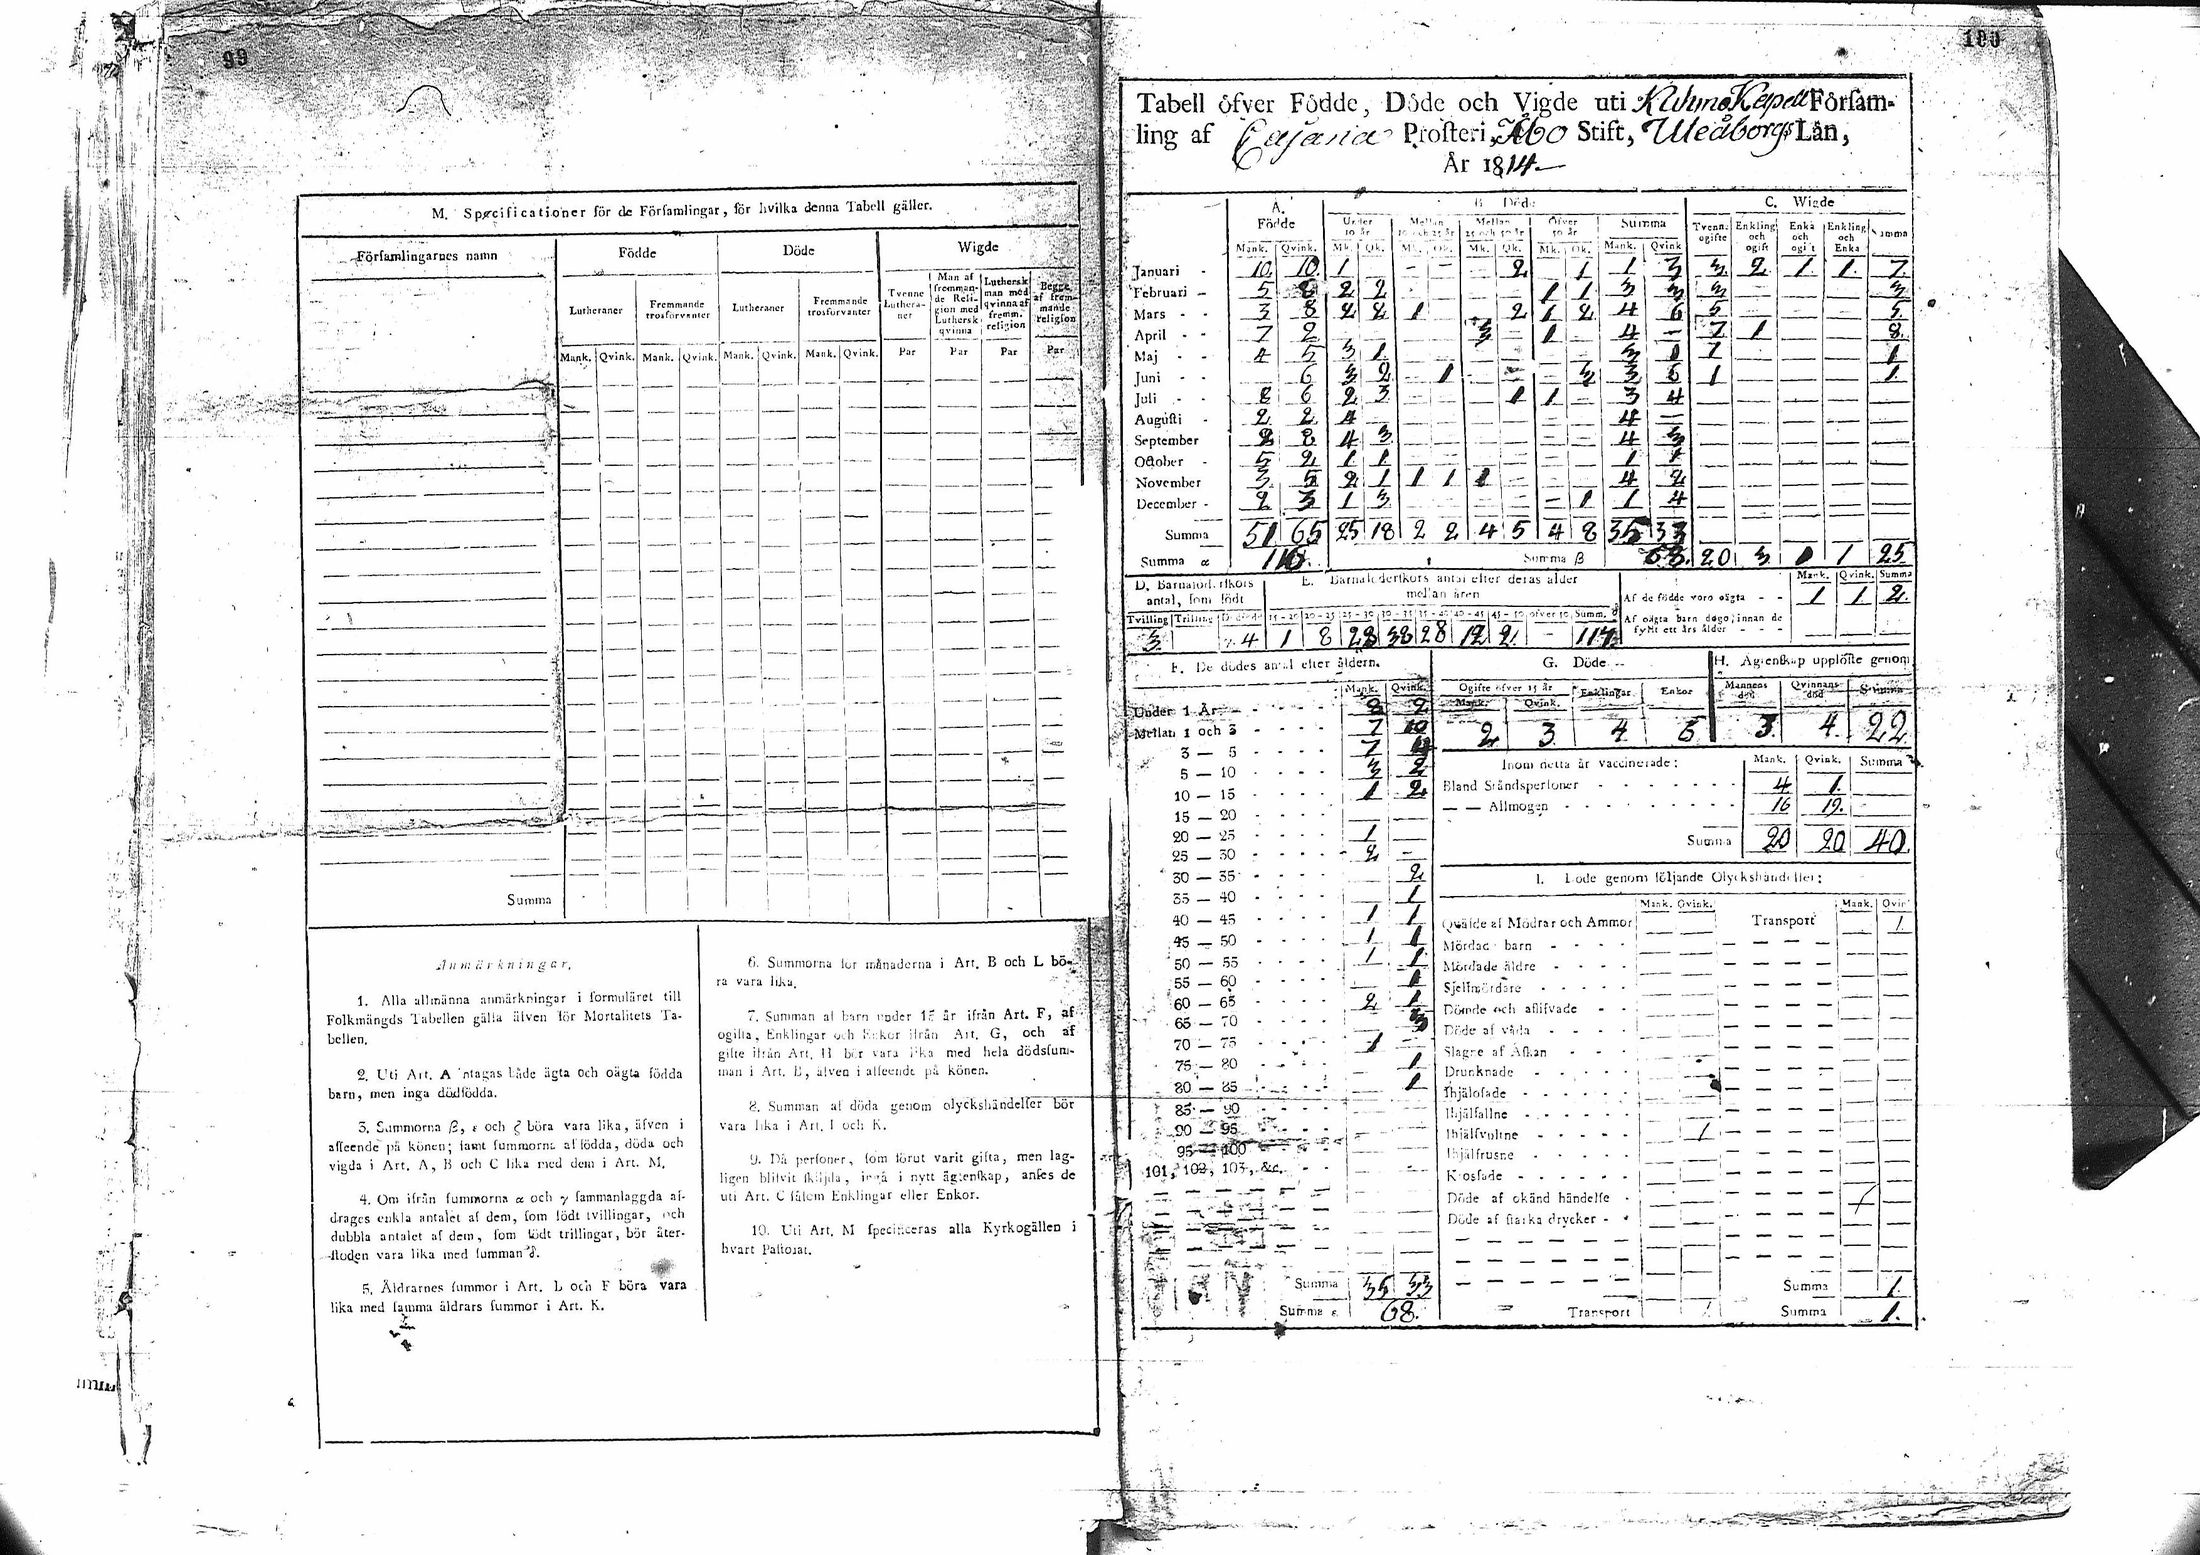 99
M. Specificationer för de Församlingar, för hvilka denna Tabell gäller.
Församlingarnes namn
Födde
Döde
Wigde
Lutheraner
Fremmande trosförvanter
Lutheraner
Fremmande trosförvanter
Tvenne Lutheraner
Man af fremmande Religion med Luthersk qvinna
Luthersk man med qvinna af fremm. religion
Begge af fremmande religion
Mank. Qvink. Mank. Qvink. Mank. Qvink. Mank. Qvink. Par Par Par Par
Summa
Anmärkningar.
1. Alla allmänna anmärkningar i formuläret till
Folkmängds Tabellen gälla äfven för Mortalitets Ta-
bellen.
2. Uti Art. A intagas både ägta och oägta födda
barn, men inga dödfödda.
3. Summorna β, ε och ζ böra vara lika, äfven i
afseende på könen; samt summorna af födda, döda och
vigda i Art. A, B och C lika med dem i Art. M.
4. Om ifrån summorna α och γ sammanlaggda af-
drages enkla antalet af dem, som födt tvillingar, och
dubbla antalet af dem, som födt trillingar, bör åter-
stoden vara lika med summan δ.
5. Åldrarnes summor i Art. L och F böra vara
lika med samma åldrars summor i Art. K.
6. Summorna för månaderna i Art. B och L bö-
ra vara lika.
7. Summan af barn under 15 år ifrån Art. F, af
ogifta, Enklingar och Enkor ifrån Art. G, och af
gifte ifrån Art. H bör vara lika med hela dödssum-
man i Art. B, äfven i afseende på könen.
8. Summan af döda genom olyckshändelser bör
vara lika i Art. I och K.
9. Då personer, som förut varit gifta, men lag-
ligen blifvit skiljda, ingå i nytt ägtenskap, anses de
uti Art. C såsom Enklingar eller Enkor.
10. Uti Art. M specificeras alla Kyrkogällen i
hvart Pastorat.
100
Tabell öfver Födde, Döde och Vigde uti Kuhmo Kapell Församling
ling af Cajana Prosteri, Åbo Stift, Uleåborgs Län,
År 1814
A. Födde
B. Döde
C. Wigde
Under 10 år
Mellan 10 och 25 år
Mellan 25 och 50 år
Öfver 50 år
Summa
Tvenne ogifte
Enkling och ogift
Enka och ogift
Enkling och Enka
Summa
Mank. Qvink. Mk. Qk. Mk. Qk. Mk. Qk. Mk. Qk. Mank. Qvink
Januari - 10 10 1 - - 2 1 1 3 3 2 1 1 7
Februari - 5 8 2 2 1 1 3 3 3 3
Mars - - 3 8 2 2 1 2 1 2 4 6 5 5
April - - 7 2 3 - 1 - 4 - 7 1 8
Maj - - 4 5 3 1 3 1 1 1
Juni - - 6 3 2 1 3 3 6 1 1
Juli - - 8 6 2 3 1 1 - 3 4
Augusti - 2 2 4 4 -
September 2 8 4 3 4 3
October - 5 2 1 1 1 1
November 3 5 2 1 1 1 1 4 2
December - 2 3 1 3 1 1 4
Summa 51 65 25 18 2 2 4 5 4 8 35 33
Summa α 116. Summa β 68. 20 3 1 1 25
D. Barnaföderskors antal, som födt
E. Barnaföderskors antal efter deras ålder
mellan åren
Tvilling Trilling 15-20 20-25 25-30 30-35 35-40 40-45 45-50 öfver 50 Summ. δ
3. 4 1 8 28 38 28 12 2 - 117
Mank. Qvink. Summa
Af de födde voro oägta - - 1 1 2.
Af oägta barn dögo, innan de
fyllt ett års ålder - - -
F. De dödes antal efter åldern.
Mank. Qvink.
Under 1 År 8 2
Mellan 1 och 3 7 10
3 — 5 7
5 — 10 3 2
10 — 15 1 2
15 — 20
20 — 25 1
25 — 30 2 -
30 — 35 2
35 — 40 1
40 — 45 1 1
45 — 50 1 1
50 — 55 1 1
55 — 60 1
60 — 65 2 1
65 — 70 3
70 — 75 1
75 — 80 1
80 — 85 1
85 — 90
90 — 95
95 — 100
101, 102, 103, &c.
Summa 35 33
Summa ε 68.
G. Döde
Ogifte öfver 15 år
Enklingar
Enkor
Mank. Qvink.
2 3 4 5
H. Ägtenskap upplöste genom
Mannens död
Qvinnans död
Summa
3. 4. 22
Inom detta år vaccinerade:
Mank. Qvink. Summa
Bland Ståndspersoner 4 1.
— — Allmogen 16 19.
Summa 20 20 40
I. Döde genom följande Olyckshändelser:
Mank. Qvink.
Transport
Mank. Qvin
1.
Qväfde af Mödrar och Ammor
Mördade barn
Mördade äldre
Sjelfmördare
Dömde och aflifvade
Döde af våda
Slagne af Åskan
Drunknade
Ihjälosade
Ihjälfallne
Ihjälsvultne 1
Ihjälfrusne
Krossade
Döde af okänd händelse
Döde af starka drycker
Transport
Summa 1.
Summa 1.